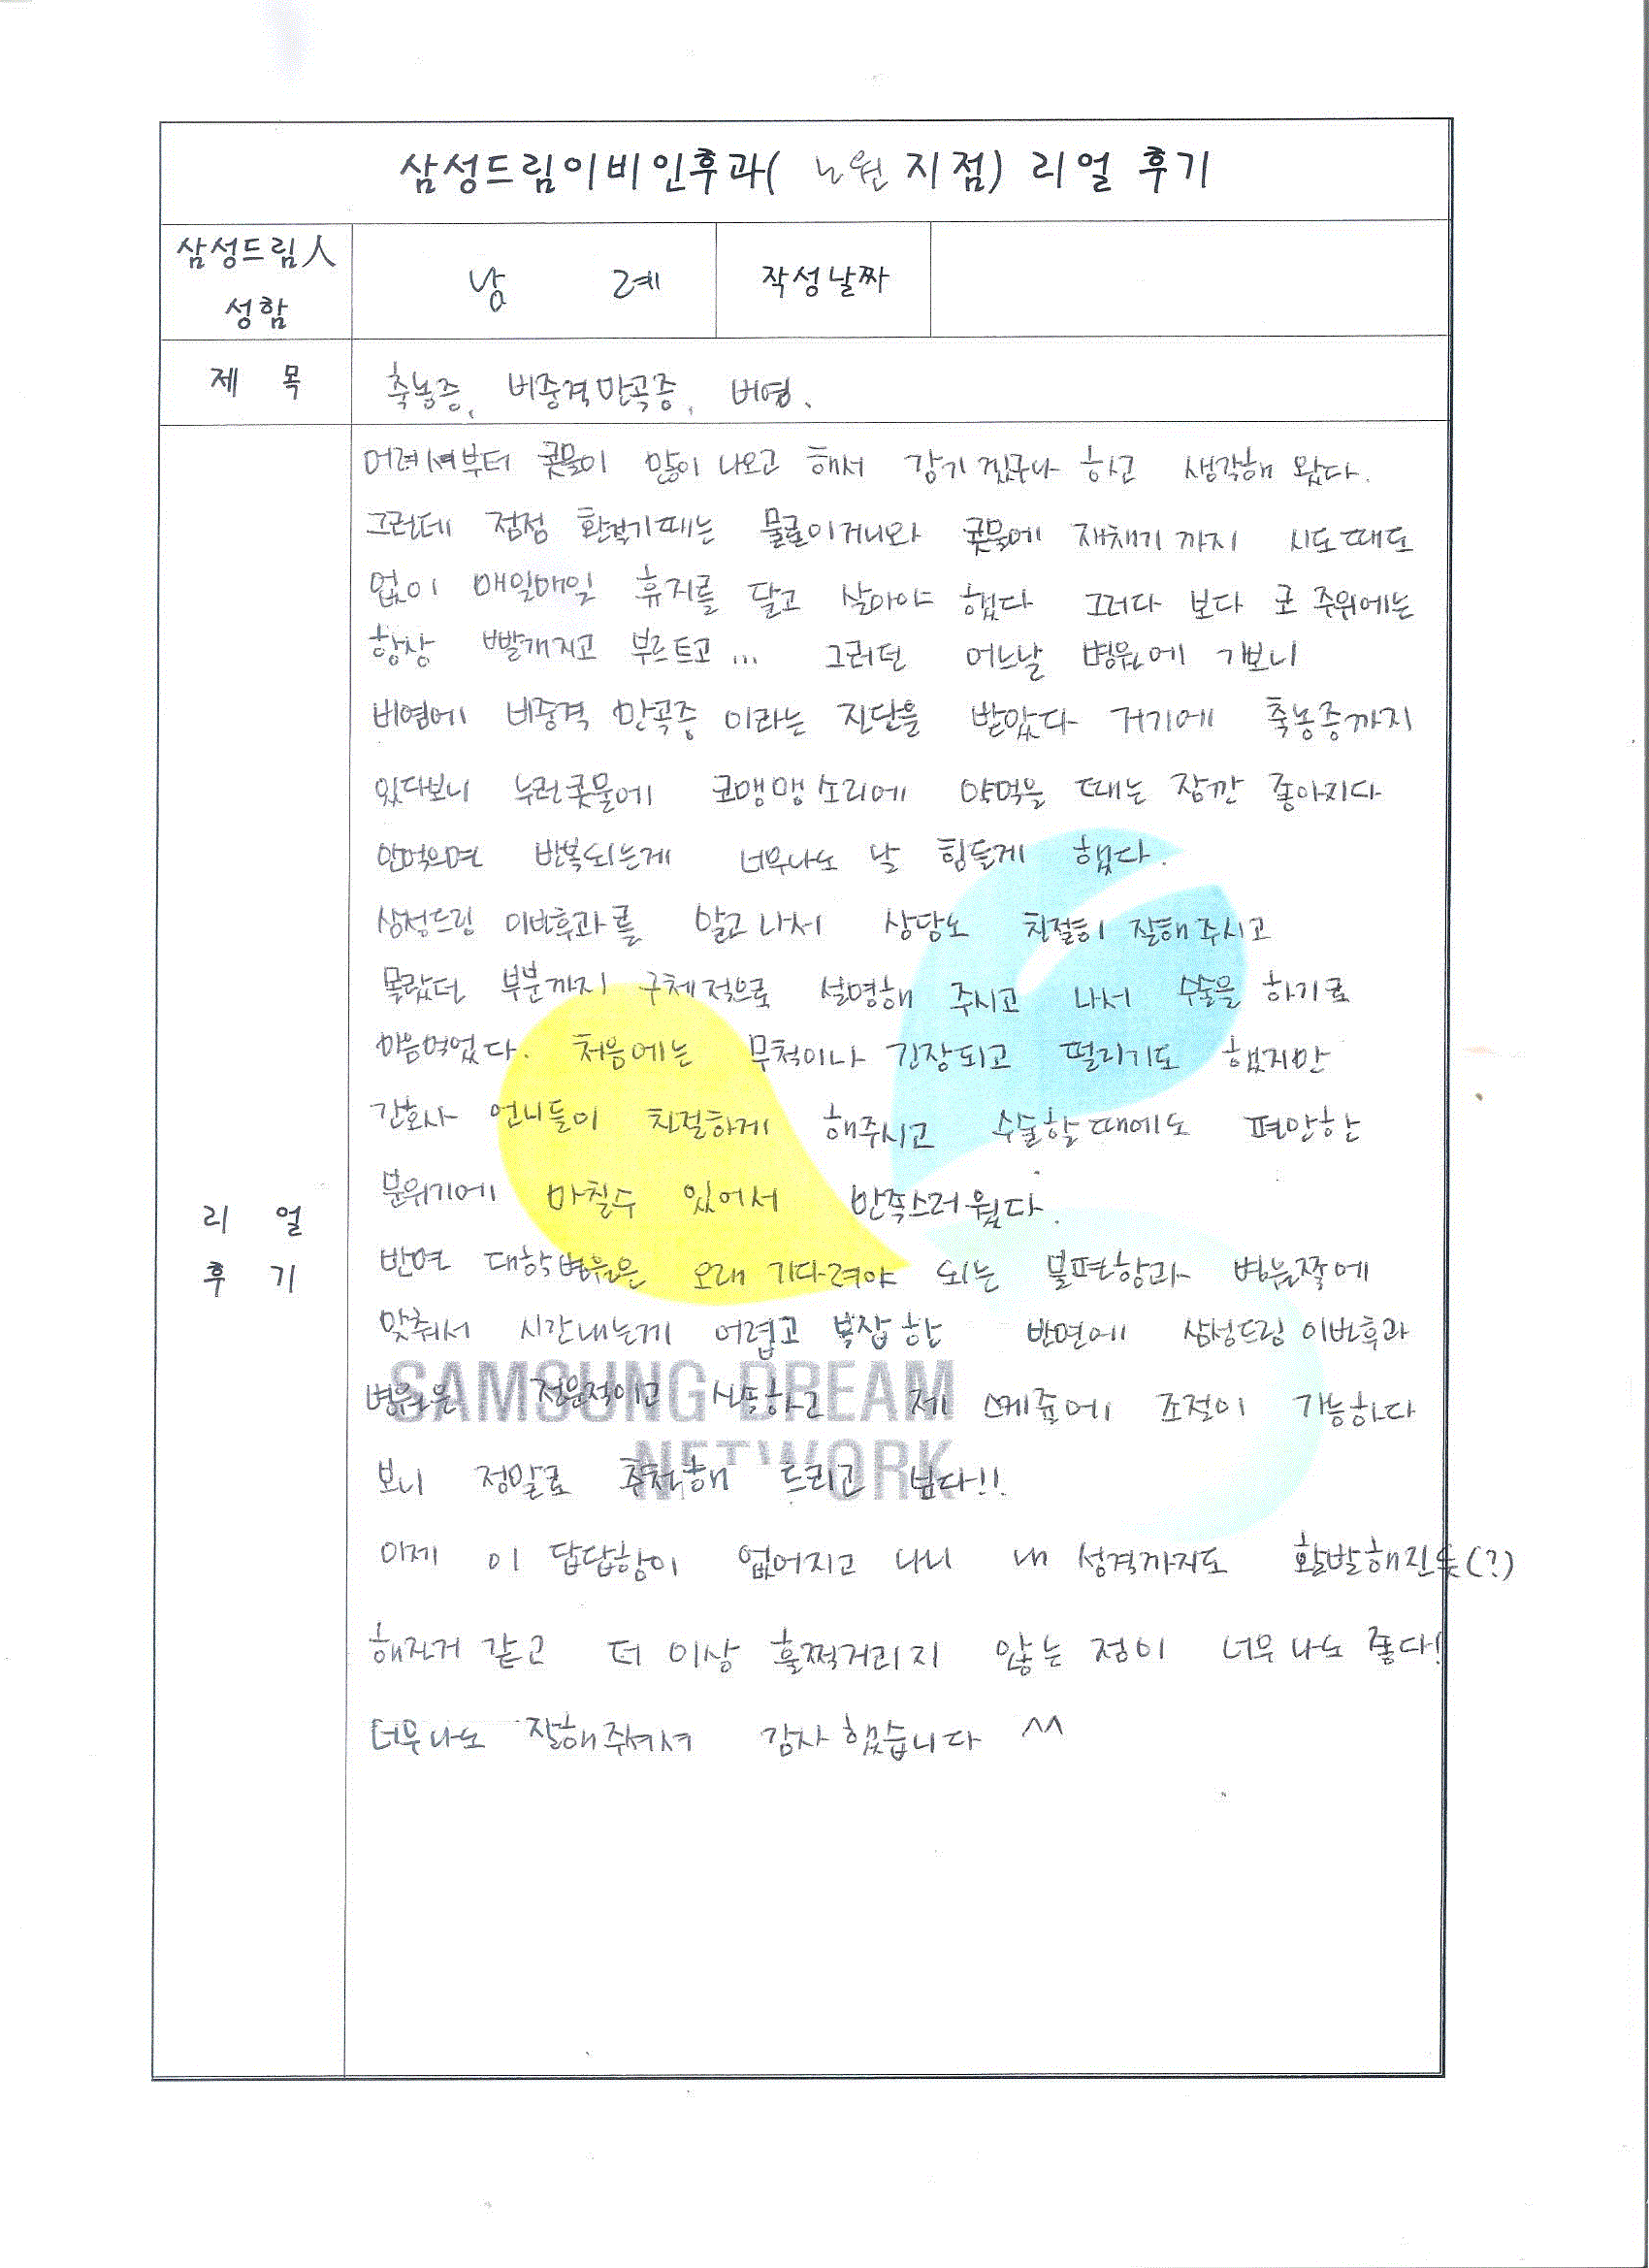 삼성드림이비인후과( 노원 지점) 리얼 후기
삼성드림人 성함
남 례
작성날짜
제 목
축농증, 비중격만곡증, 비염.
리 얼 후 기
어려서부터 콧물이 많이 나오고 해서 감기겠구나 하고 생각해 왔다.
그런데 점점 환절기때는 물론이거니와 콧물에 재채기까지 시도때도
없이 매일매일 휴지를 달고 살아야 했다 그러다 보다 코 주위에는
항상 빨개지고 부르트고... 그러던 어느날 병원에 가보니
비염에 비중격 만곡증 이라는 진단을 받았다 거기에 축농증까지
있다보니 누런콧물에 코맹맹소리에 약먹을 때는 잠깐 좋아지다
안먹으면 반복되는게 너무나도 날 힘들게 했다.
삼성드림 이빈후과를 알고나서 상담도 친절히 잘해주시고
몰랐던 부분까지 구체적으로 설명해 주시고 나서 수술을 하기로
마음먹었다. 처음에는 무척이나 긴장되고 떨리기도 했지만
간호사 언니들이 친절하게 해주시고 수술할때에도 편안한
분위기에 마칠수 있어서 만족스러웠다.
반면 대학병원은 오래 기다려야 되는 불편함과 병원쪽에
맞춰서 시간내는게 어렵고 복잡한 반면에 삼성드림 이빈후과
병원은 전문적이고 신속하고 제 스케쥴에 조절이 가능하다
보니 정말로 추천해 드리고 싶다!!
이제 이 답답함이 없어지고 나니 내 성격까지도 활발해진듯(?)
해진거 같고 더 이상 훌쩍거리지 않는 점이 너무나도 좋다!
너무나도 잘해주셔서 감사했습니다 ^^
SAMSUNG DREAM
NETWORK